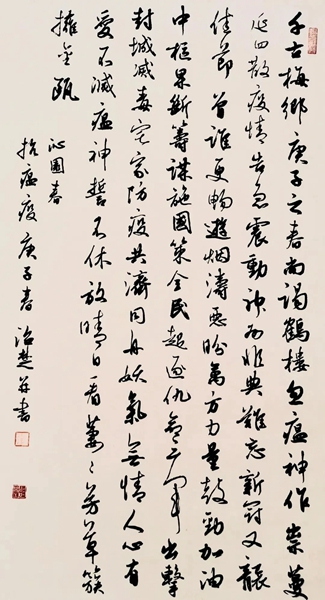 千古梅鄉庚子之春尚謁鶴樓忽瘟神作祟蔓
延四散疫情告急震動神州非典難忘新冠又襲
佳節曾誰更暢遊烟濤惡盼萬方力量鼓勁加油
中樞果斷籌謀施國策全民起逐仇三軍出擊
封城滅毒宅家防疫共濟同舟妖氣無情人心有
愛不滅瘟神誓不休放晴日看萋々芳草簇
擁金甌
沁園春
抗瘟疫庚子春治楚并書